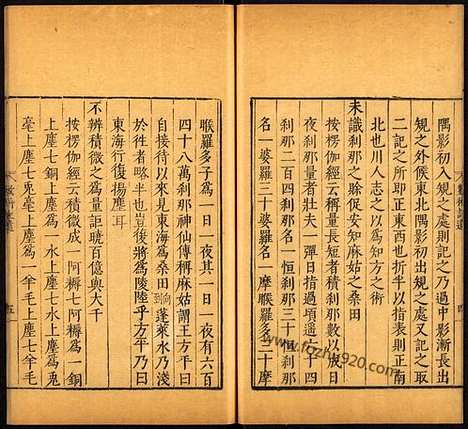 隅影初入規之處則記之乃過中影漸長出
規之外候東北隅影初出規之處又記之取
二記之所即正東西也折半以指表則正南
北也川人志之以爲知方之術
未識刹那之賖促安知麻姑之桑田
按楞伽經云稱量長短者積刹那數以成日
夜刹那量者壯夫一彈日指過頃遥六十四
刹那二百四刹那名一恒刹那三十恒刹那
名一婆羅三十婆羅名一摩睺羅三十摩
睺羅多子爲一日一夜其一日一夜有六百
四十八萬刹那神仙傳稱麻姑謂王方平曰
自接待以來見東海爲桑田向到蓬萊水乃淺
於徃者略半也豈復將爲陵陸乎方平乃曰
東海行復揚塵耳
不辨積微之爲量詎曉百億與大千
按楞伽經云積微成一阿耨七阿耨爲一銅
上塵七銅上塵爲一水上塵七水上塵爲一兎
毫上塵七兎毫上塵爲一羊毛上塵七羊毛
數術記遺
五
www.fozhu920.com